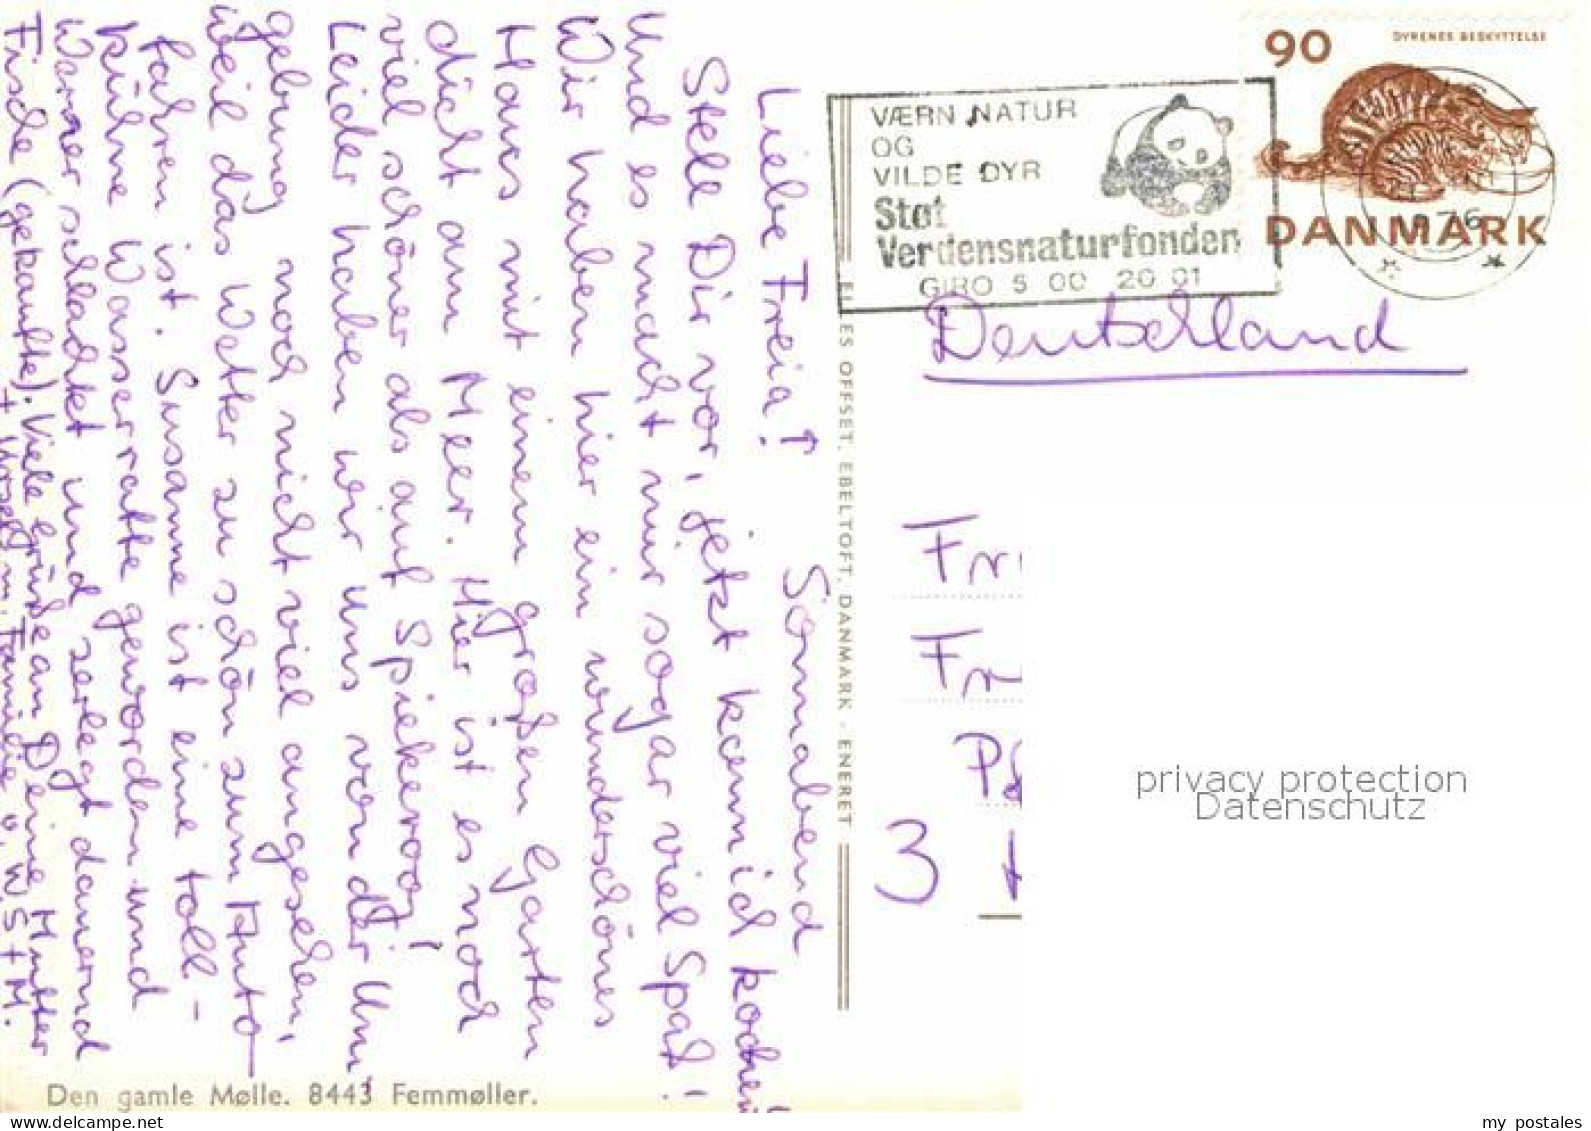 Sonnabend
Liebe Freia!
Stell Dir vor, jetzt kann ich kochen
Und es macht mir sogar viel Spaß!
Wir haben hier ein wunderschönes
Haus mit einem großen Garten
dicht am Meer. Hier ist es noch
viel schöner als auf Spiekeroog!
Leider haben wir uns von der Um-
gebung noch nicht viel angesehen,
weil das Wetter zu schön zum Auto-
fahren ist. Susanne ist eine toll-
kühne Wasserratte geworden und
Werner schlachtet und zerlegt dauernd
Fische (gekaufte). Viele Grüße an Deine Mutter
m. Familie v. W. S + M.
Den gamle Mølle. 8443 Femmøller.
ES OFFSET, EBELTOFT, DANMARK - ENERET
VÆRN NATUR
OG
VILDE DYR
Støt
Verdensnaturfonden
GIRO 5 00 20 01
90
DYRENES BESKYTTELSE
DANMARK
Deutschland
3
privacy protection
Datenschutz
my postales